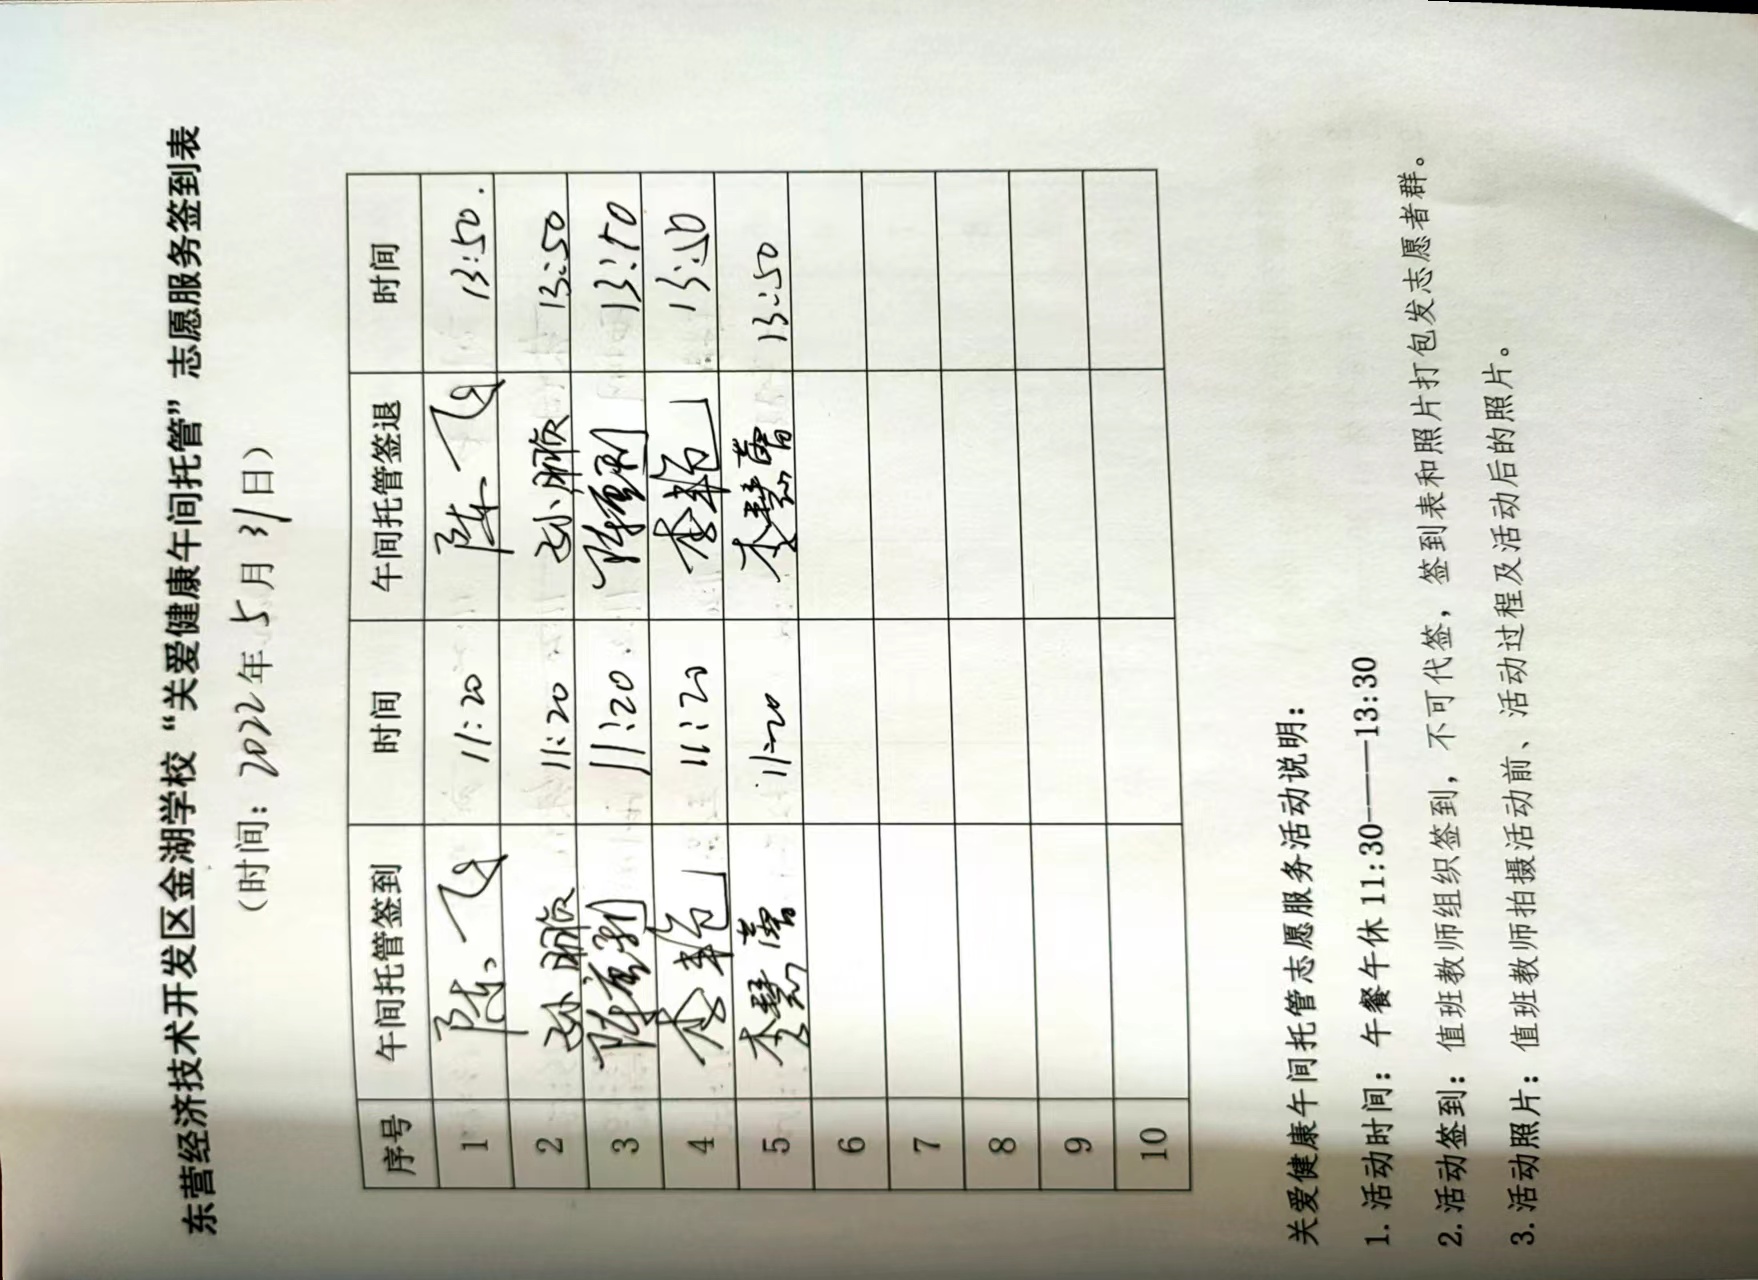 东营经济技术开发区金湖学校“关爱健康午间托管”志愿服务签到表
（时间：2022年5月31日）
序号 午间托管签到 时间 午间托管签退 时间
1 陈飞 11:20 陈飞 13:50.
2 孙丽顺 11:20 孙丽顺 13:50
3 11:20 13:50
4 李艳 11:20 李艳 13:50
5 李慧蕾 11:20 李慧蕾 13:50
6
7
8
9
10
关爱健康午间托管志愿服务活动说明：
1.活动时间：午餐午休11:30——13:30
2.活动签到：值班教师组织签到，不可代签，签到表和照片打包发志愿者群。
3.活动照片：值班教师拍摄活动前、活动过程及活动后的照片。